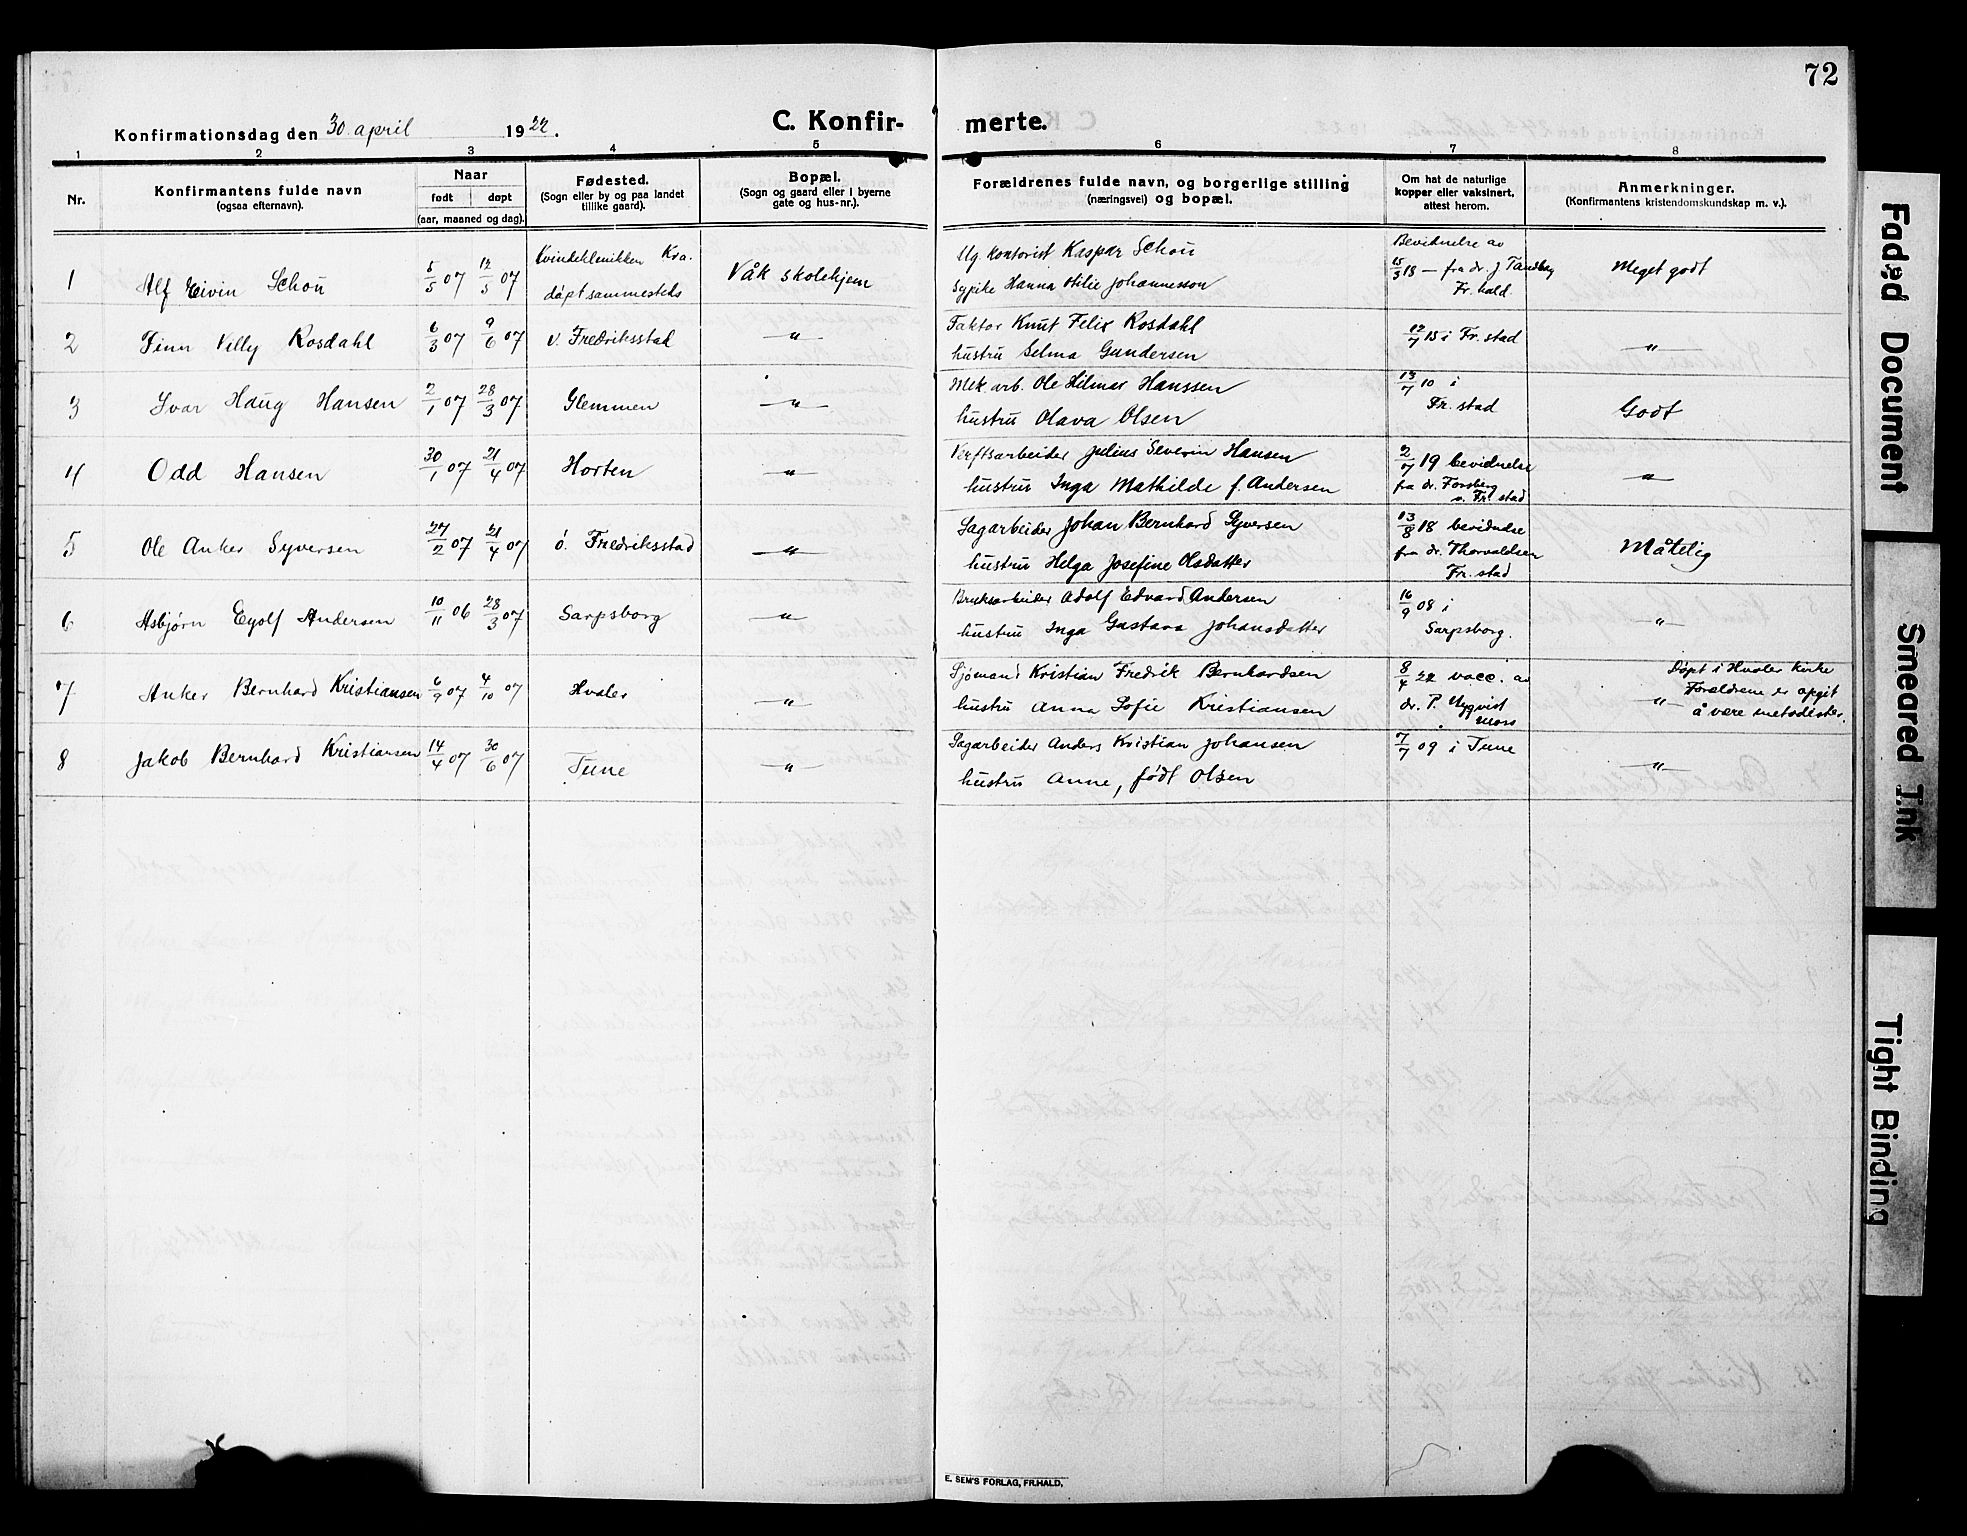 72
Konfirmationsdag den 30. april 1922.
C. Konfir-merte.
1 2 3 4 5 6 7 8
Nr.
Konfirmantens fulde navn
(ogsaa efternavn).
Naar
født døpt
(aar, maaned og dag).
Fødested.
(Sogn eller by og paa landet
tillike gaard).
Bopæl.
(Sogn og gaard eller i byerne
gate og hus-nr.).
Forældrenes fulde navn, og borgerlige stilling
(næringsvei) og bopæl.
Om hat de naturlige
kopper eller vaksinert,
attest herom.
Anmerkninger.
(Konfirmantens kristendomskundskap m. v.).
1 Alf Eivin Schou 5/5 07 12/5 07
Kvindeklinikken Kra.
døpt sammesteds
Våk skolehjem
Ug. kontorist Kaspar Schou
Sypike Hanna Otilie Johannesson
Bevidnelse av
15/3 18 — fra dr. J. Tandberg
Fr.hald.
Meget godt
2 Finn Villy Rosdahl 6/3 07 9/6 07 v. Fredriksstad —〃—
Faktor Knut Felix Rosdahl
hustru Selma Gundersen
12/7 15 i Fr.stad
—〃—
3 Ivar Haug Hansen 2/1 07 28/3 07 Glemmen —〃—
Mek. arb. Ole Hilmar Hanssen
hustru Olava Olsen
13/7 10 i
Fr.stad
Godt
4 Odd Hansen 30/1 07 21/4 07 Horten —〃—
Verftsarbeider Julius Severin Hansen
hustru Inga Mathilde f. Andersen
2/7 19 bevidnelse
fra dr. Forsberg
v. Fr.stad
—〃—
5 Ole Anker Syversen 27/2 07 21/4 07 ö. Fredriksstad —〃—
Sagarbeider Johan Bernhard Syversen
hustru Helga Josefine Olsdatter
13/8 18 bevidnelse
fra dr. Thorvaldsen
Fr.stad
Måtelig
6 Asbjørn Eyolf Andersen 10/11 06 28/3 07 Sarpsborg —〃—
Bruksarbeider Adolf Edvard Andersen
hustru Inga Gustava Johansdatter
16/9 08 i
Sarpsborg.
—〃—
7 Anker Bernhard Kristiansen 6/9 07 4/10 07 Hvaler —〃—
Sjømand Kristian Fredrik Bernhardsen
hustru Anna Sofie Kristiansen
8/4 22 vacc. av
dr. P. Nyqvist
Moss
—〃—
Døpt i Hvaler kirke
Forældrene er opgit
å være metodister.
8 Jakob Bernhard Kristiansen 14/4 07 30/6 07 Tune —〃—
Sagarbeider Anders Kristian Johansen
hustru Anne, født Olsen
7/7 09 i Tune
—〃—
E. SEM'S FORLAG, FR.HALD.
Faded Document
Smeared Ink
Tight Binding